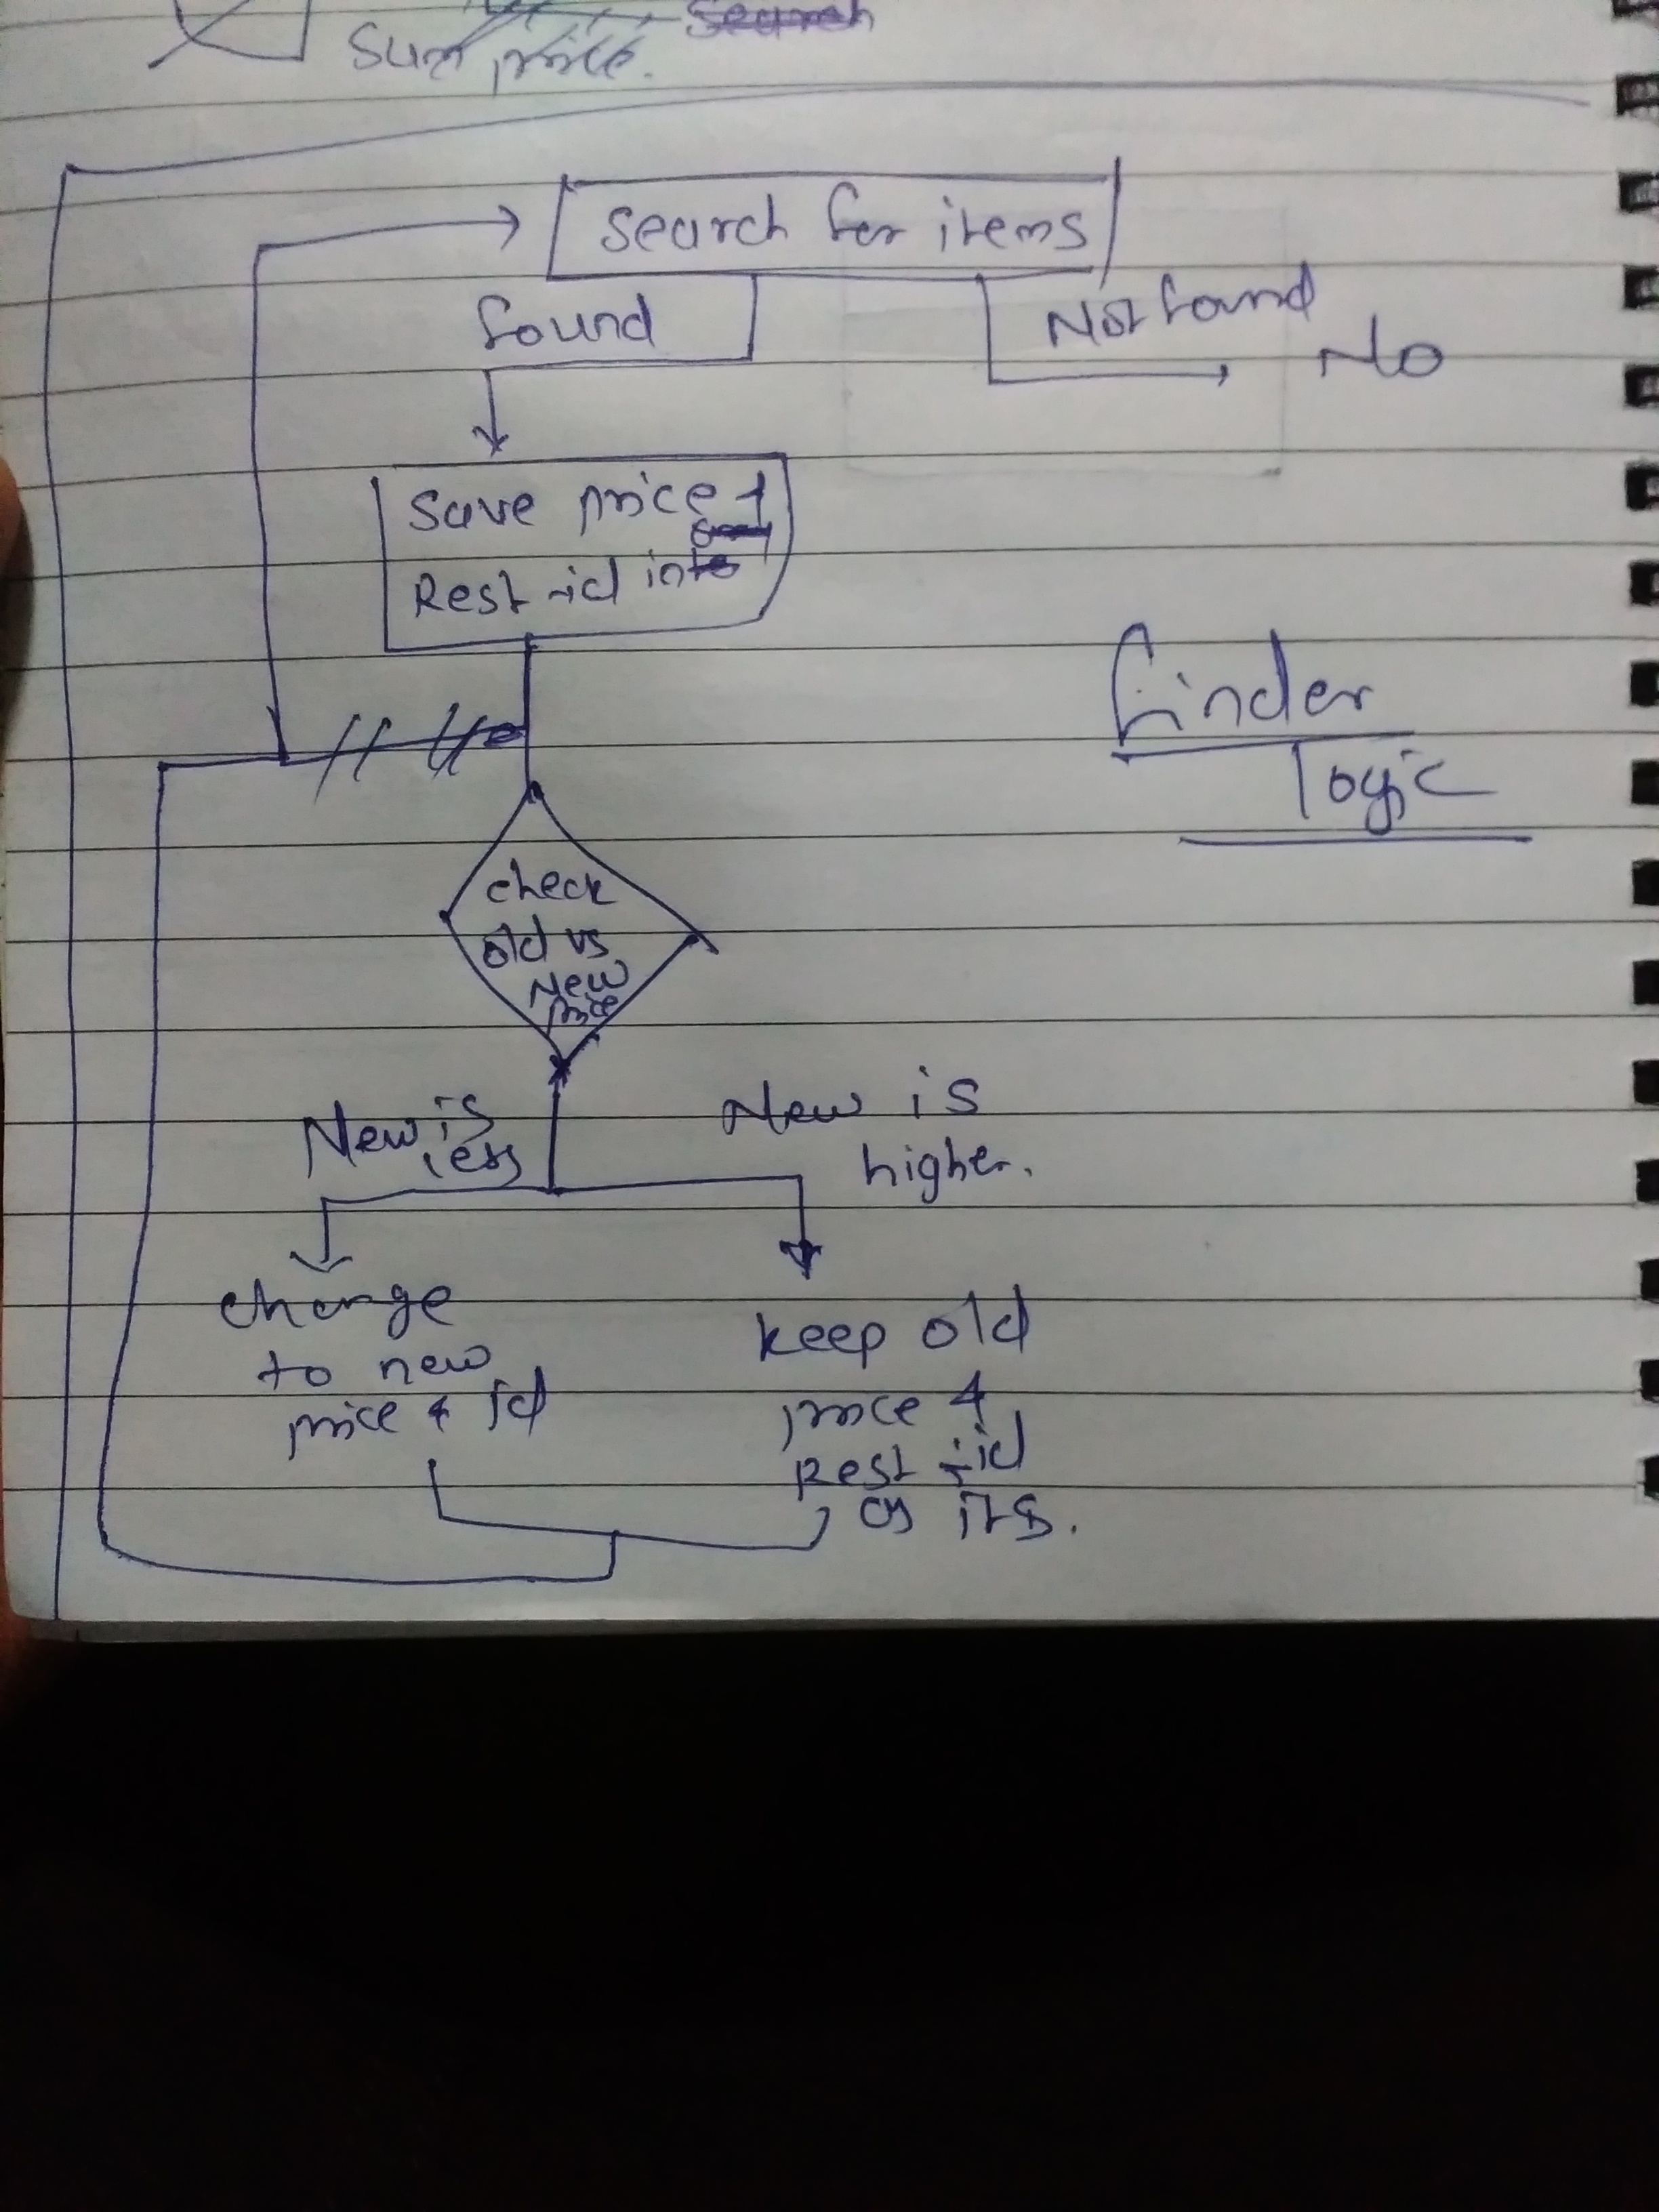 Sum price.
Search
Search for items
found
Not found
No
Save price &
Rest-id
finder
logic
check
old vs
New
price
New is
less
New is
higher.
change
to new
price & id
keep old
price &
Rest-id
as its.